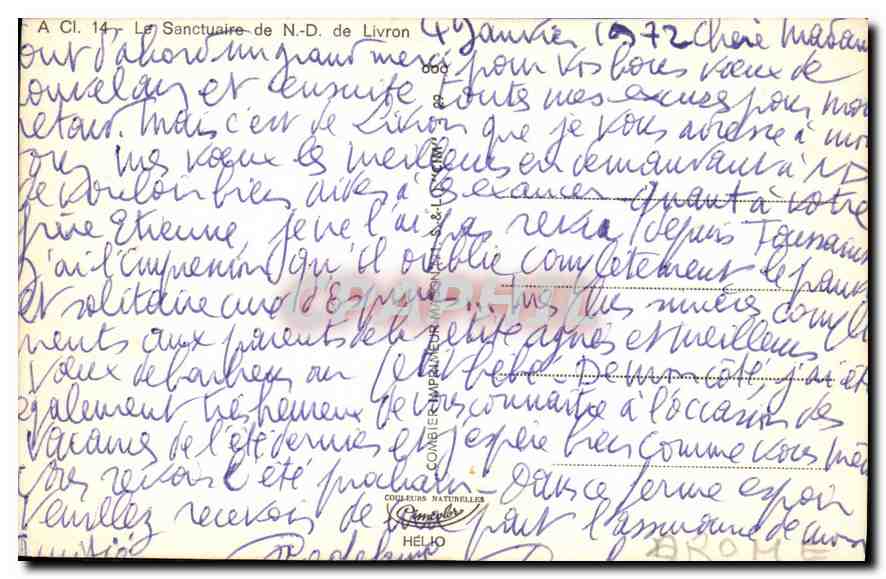 A Cl. 14 - Le Sanctuaire de N.-D. de Livron 4 Janvier 1972 Chère Madam
out d'abord un grand merci pour vos bons vœux de
nouvel an et ensuite toutes mes excuses pour mon
retard. Mais c'est de Livron que je vous adresse à mon
tour mes vœux les meilleurs en demandant à ND
de vouloir bien aider à les exaucer. Quant à votre
frère Etienne, je ne l'ai pas revu depuis Toussaint
J'ai l'impression qu'il oublie complètement le pauv
et solitaire curé d'Espinas... mes plus sincères compli
ments aux parents de la petite agnès et meilleurs
vœux de bonheur au petit bébé. De mon côté, j'ai ét
également très heureux de vous connaître à l'occasion des
vacances de l'été dernier et j'espère bien comme vous mê
vous revoir l'été prochain. Dans ce ferme espoir
Veuillez recevoir de part l'assurance de mon
COMBIER IMPRIMEUR MACON
COULEURS NATURELLES
Cimcolor
HÉLIO
DROME